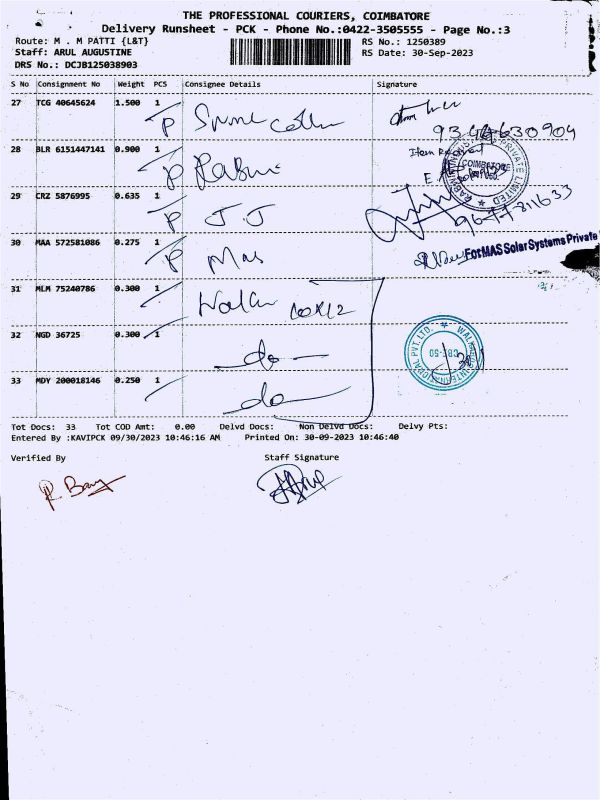 THE PROFESSIONAL COURIERS, COIMBATORE
Delivery Runsheet - PCK - Phone No.:0422-3505555 - Page No.:3
Route: M . M PATTI {L&T}
RS No.: 1250389
Staff: ARUL AUGUSTINE
RS Date: 30-Sep-2023
DRS No.: DCJB125038903
S No Consignment No Weight PCS Consignee Details Signature
27 TCG 40645624 1.500 1
P
9344630904
28 BLR 6151447141 0.900 1
P
COIMBATORE
PRIVATE LIMITED
29 CRZ 5876995 0.635 1
P J.J
9677811633
30 MAA 572581086 0.275 1
P Mas
For MAS Solar Systems Private
31 MLM 75240786 0.300 1
32 NGD 36725 0.300 1
do
CBE-50
33 MDY 200018146 0.250 1
do
Tot Docs: 33 Tot COD Amt: 0.00 Delvd Docs: Non Delvd Docs: Delvy Pts:
Entered By :KAVIPCK 09/30/2023 10:46:16 AM Printed On: 30-09-2023 10:46:40
Verified By Staff Signature